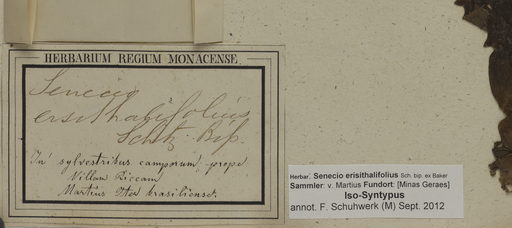 HERBARIUM REGIUM MONACENSE.
Senecio
erisithalifolius
Schtz. Bip.
In sylvestribus camporum prope
Villam Riccam
Martius Iter brasiliense.
Herbar. Senecio erisithalifolius Sch. bip. ex Baker
Sammler: v. Martius Fundort: [Minas Geraes]
Iso-Syntypus
annot. F. Schuhwerk (M) Sept. 2012